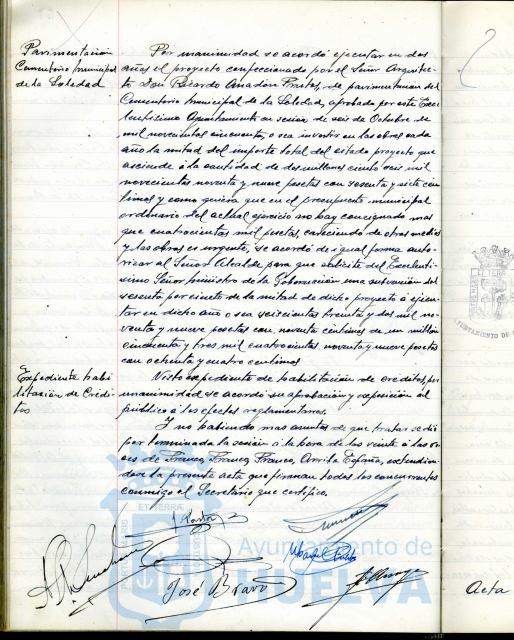 Pavimentación
Cementerio municipal
de la Soledad
Por unanimidad se acordó ejecutar en dos
años el proyecto confeccionado por el Señor Arquitec-
to Don Ricardo Anadón Frutos, de pavimentación del
Cementerio municipal de la Soledad, aprobado por este Exce
lentísimo Ayuntamiento en sesión de seis de Octubre de
mil novecientos cincuenta, o sea invertir en las obras cada
año la mitad del importe total del citado proyecto que
asciende á la cantidad de dos millones ciento seis mil
novecientas noventa y nueve pesetas con sesenta y siete cén
timos y como quiera que en el presupuesto municipal
ordinario del actual ejercicio no hay consignado mas
que cuatrocientas mil pesetas, careciendo de otros medios
y las obras es urgente, se acordó de igual forma auto-
rizar al Señor Alcalde para que solicite del Excelentí-
simo Señor ministro de la Gobernación una subvención del
sesenta por ciento de la mitad de dicho proyecto á ejecu-
tar en dicho año o sea seiscientas treinta y dos mil no-
venta y nueve pesetas con noventa céntimos de un millón
cincuenta y tres mil cuatrocientas noventa y nueve pesetas
con ochenta y cuatro céntimos
Expediente habi
litación de Crédi
tos
Visto expediente de habilitación de créditos, por
unanimidad se acordó su aprobación y exposición al
público á los efectos reglamentarios.
Y no habiendo mas asuntos de que tratar se dió
por terminada la sesión á la hora de las veinte á las vo-
ces de Franco, Franco, Franco, Arriba España, extendien-
dose la presente acta que firman todos los concurrentes
conmigo el Secretario que certifico.
José Bravo
Ayuntamiento de
HUELVA
Acta